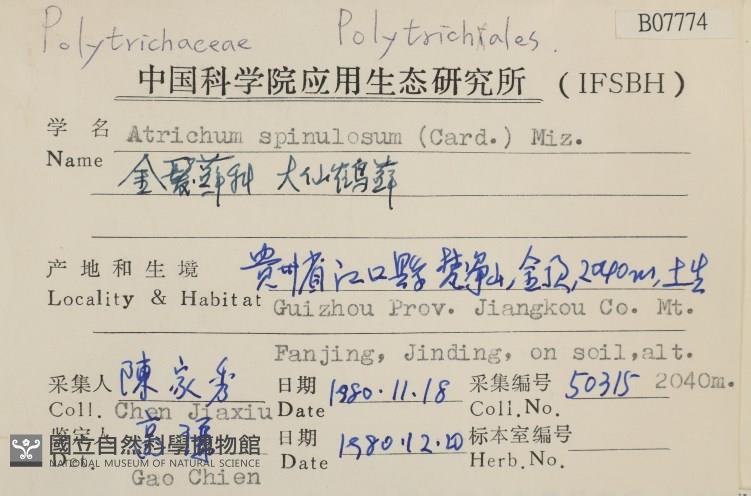 Polytrichaceae Polytrichiales.
B07774
中国科学院应用生态研究所 (IFSBH)
学名 Atrichum spinulosum (Card.) Miz.
Name 金髮蘚科 大仙鶴蘚
产地和生境 貴州省江口縣 梵淨山,金頂,2040m,土生
Locality & Habitat Guizhou Prov. Jiangkou Co. Mt.
Fanjing, Jinding, on soil,alt.
采集人 陳家秀 日期 1980.11.18 采集编号 50315 2040m.
Coll. Chen Jiaxiu Date Coll.No.
鉴定人 高 日期 1980.12. 标本室编号
國立自然科學博物館
NATIONAL MUSEUM OF NATURAL SCIENCE
Date Herb.No.
Gao Chien